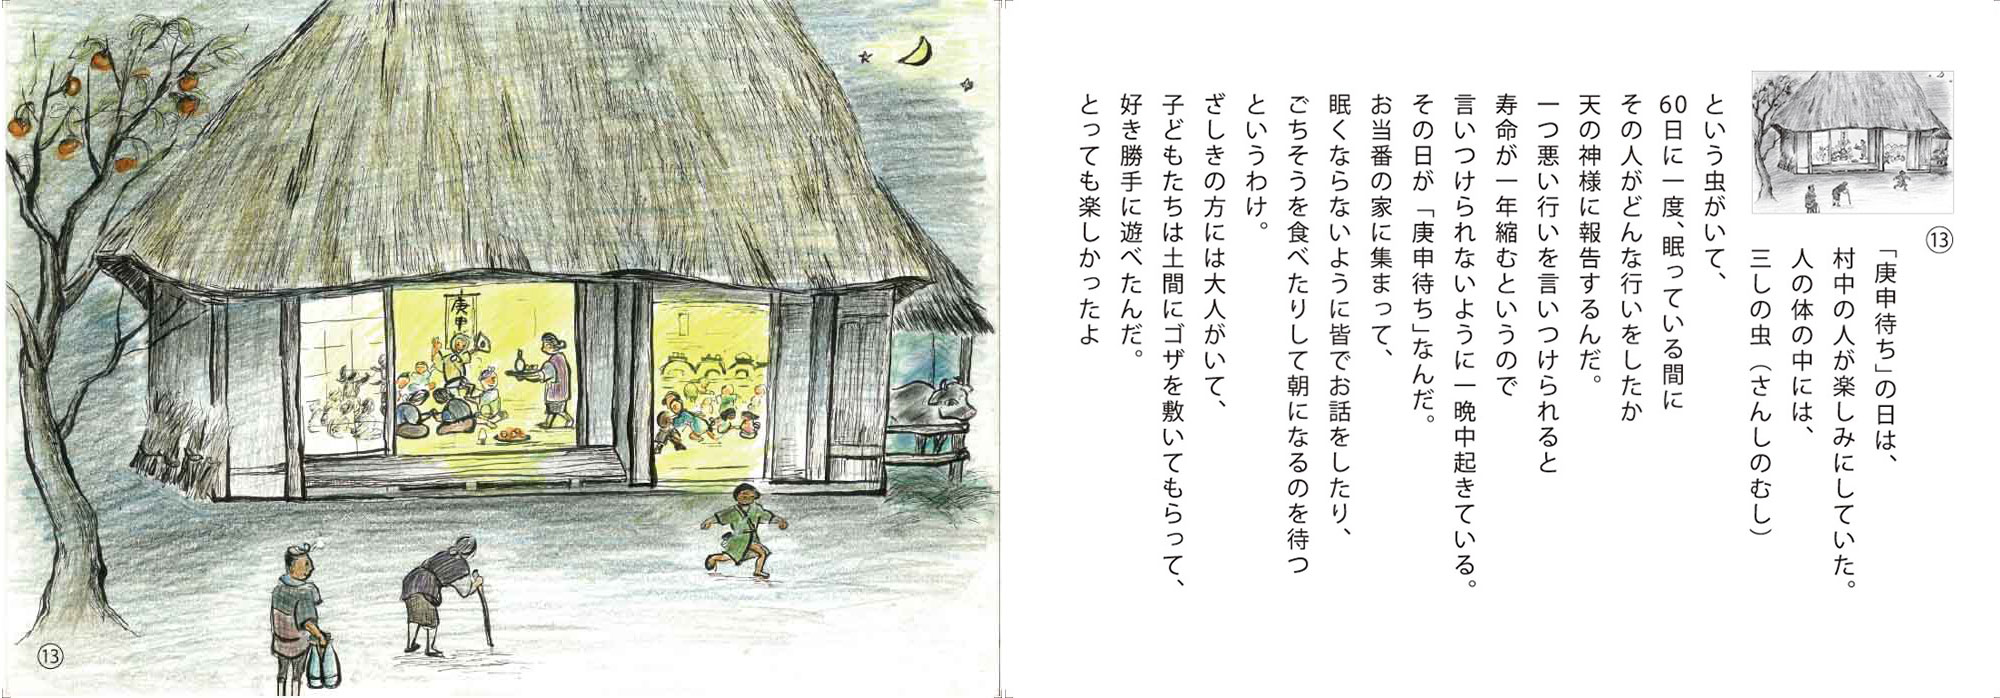 庚申
⑬
⑬
「庚申待ち」の日は、
村中の人が楽しみにしていた。
人の体の中には、
三しの虫（さんしのむし）
という虫がいて、
60日に一度、眠っている間に
その人がどんな行いをしたか
天の神様に報告するんだ。
一つ悪い行いを言いつけられると
寿命が一年縮むというので
言いつけられないように一晩中起きている。
その日が「庚申待ち」なんだ。
お当番の家に集まって、
眠くならないように皆でお話をしたり、
ごちそうを食べたりして朝になるのを待つ
というわけ。
ざしきの方には大人がいて、
子どもたちは土間にゴザを敷いてもらって、
好き勝手に遊べたんだ。
とっても楽しかったよ